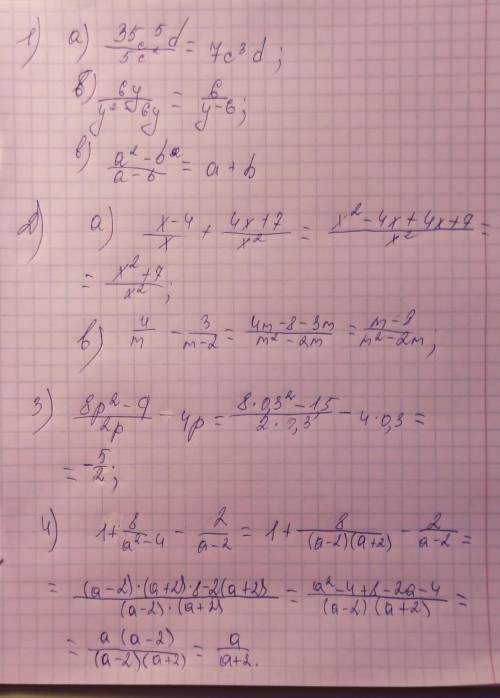 1) а) 35c⁵d/5c² = 7c³d;
б) 6y/y²-6y = 6/y-6;
в) a²-b²/a-b = a+b
2) а) x-4/x + 4x+7/x² = x²-4x+4x+7/x² =
= x²+7/x²;
в) 4/m - 3/m-2 = 4m-8-3m/m²-2m = m-8/m²-2m;
3) 8p²-q/2p - 4p = 8·0,3²-15/2·0,3 - 4·0,3 =
= -5/2;
4) 1+ 8/a²-4 - 2/a-2 = 1+ 8/(a-2)(a+2) - 2/a-2 =
= (a-2)·(a+2)·8-2(a+2)/(a-2)·(a+2) = a²-4+8-2a-4/(a-2)(a+2) =
= a(a-2)/(a-2)(a+2) = a/a+2.